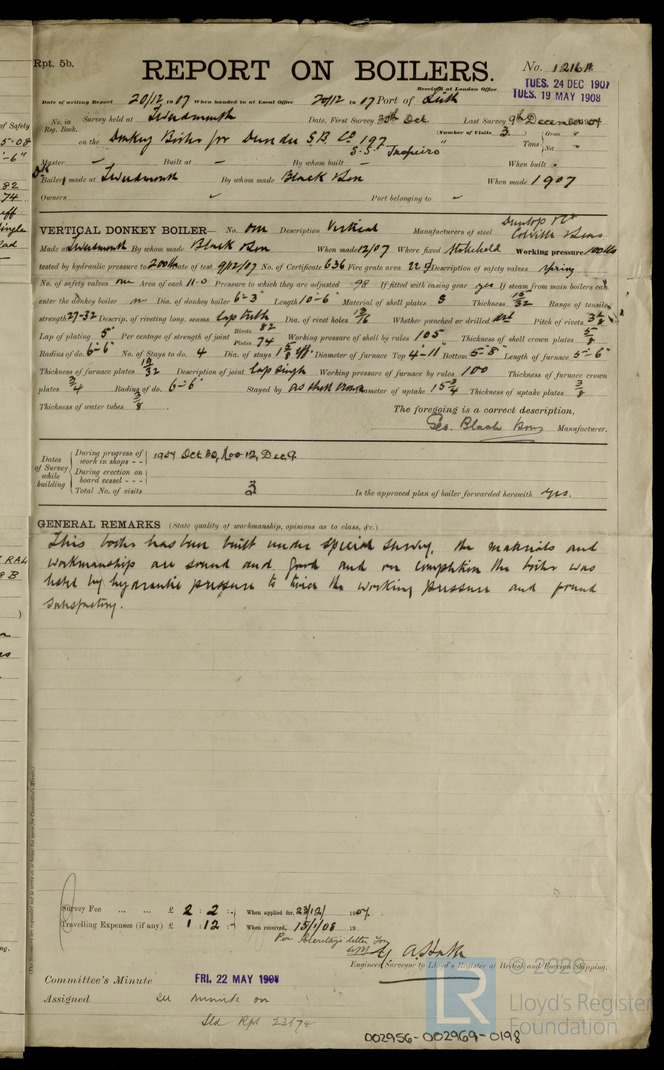 Rpt. 5b.
REPORT ON BOILERS.
No. 12164
Received at London Office
TUES. 24 DEC 1907
TUES. 19 MAY 1908
Date of writing Report 20/12 1907 When handed in at Local Office 20/12 1907 Port of Leith
No. in Reg. Book. Survey held at Tweedmouth Date, First Survey 30th Oct Last Survey 9th December 1907
on the Donkey Boiler for Dundee S.B. Co 197 (Number of Visits 3) Gross Tons Net
S.S.
Master - Built at - By whom built - When built -
Boiler made at Tweedmouth By whom made Black & Son When made 1907
Owners - Port belonging to -
VERTICAL DONKEY BOILER— No. One Description Vertical Manufacturers of steel Dunlop & Co Colville & Sons
Made at Tweedmouth By whom made Black & Son When made 12/07 Where fixed Stokehold Working pressure 100 lbs
tested by hydraulic pressure to 200 lbs Date of test 9/12/07 No. of Certificate 636 Fire grate area 22 Description of safety valves spring
No. of safety valves one Area of each 11.0 Pressure to which they are adjusted 98 If fitted with easing gear yes If steam from main boilers can
enter the donkey boiler no Dia. of donkey boiler 6-3" Length 10-6" Material of shell plates S Thickness 15/32 Range of tensile
strength 27-32 Descrip. of riveting long. seams lap treble Dia. of rivet holes 13/16 Whether punched or drilled Pitch of rivets
Lap of plating 5" Per centage of strength of joint Rivets 82 Plates 74 Working pressure of shell by rules 105 Thickness of shell crown plates 5/8
Radius of do. 6-6" No. of Stays to do. 4 Dia. of stays Diameter of furnace Top 4-11" Bottom 5-8" Length of furnace 5-6"
Thickness of furnace plates 19/32 Description of joint lap single Working pressure of furnace by rules 100 Thickness of furnace crown
plates 3/4 Radius of do. 6-6" Stayed by as shell crown Diameter of uptake 15 3/4 Thickness of uptake plates 3/8
Thickness of water tubes 3/8
The foregoing is a correct description,
Geo. Black & Sons Manufacturer.
Dates of Survey while building
During progress of work in shops - - 1907 Oct 30, Nov 12, Dec 9
During erection on board vessel - - -
Total No. of visits 3 Is the approved plan of boiler forwarded herewith yes.
GENERAL REMARKS (State quality of workmanship, opinions as to class, &c.)
This boiler has been built under special survey, the materials and
workmanship are sound and good and on completion the boiler was
tested by hydraulic pressure to twice the working pressure and found
satisfactory.
Survey Fee ... ... £ 2 : 2 : - When applied for, 23/12/1907
Travelling Expenses (if any) £ 1 : 12 : - When received, 15/1/08 19
Per Secretary's letter
Engineer Surveyor to Lloyd's Register of British and Foreign Shipping.
Committee's Minute FRI. 22 MAY 1908
Assigned See minute on
Sld Rpt 23674
© 2020
LR
Lloyd's Register
Foundation
002956-002969-0198